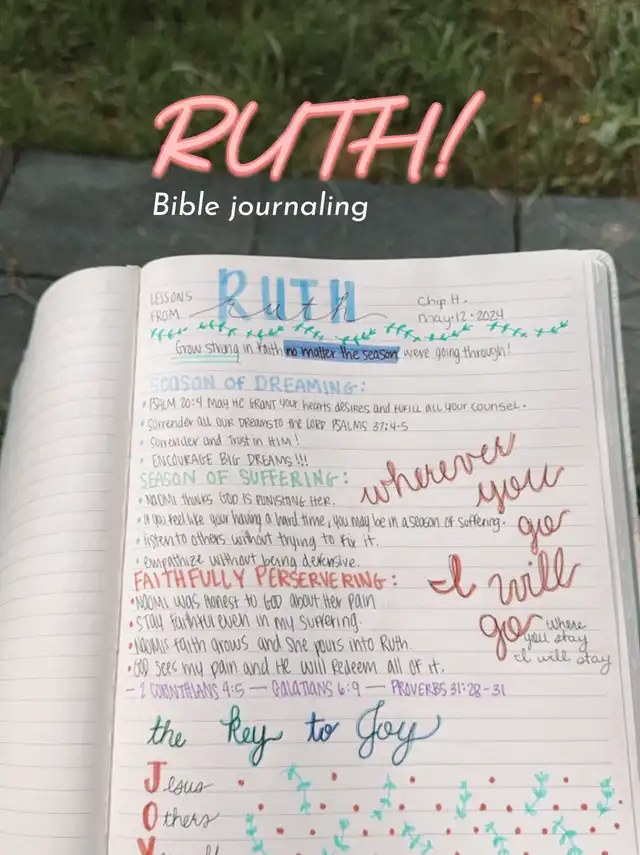 RUTH!
Bible journaling
LESSONS
FROM
RUTH
ruth
Chip H.
May·12·2024
Grow strong in faith no matter the season were going through!
SEASON OF DREAMING:
• PSALM 20:4 MAY HE GRANT your hearts desires and fulfill all your counsel.
• Surrender all our dreams to the LORD PSALMS 37:4-5
• Surrender and Trust in HIM!
• ENCOURAGE BIG DREAMS!!!
SEASON OF SUFFERING:
• NAOMI THINKS GOD IS PUNISHING HER.
• If you feel like your having a hard time, you may be in a season of suffering.
• listen to others without trying to fix it.
• empathize without being defensive.
wherever
you
go
I will
go
where
you stay
I will stay
FAITHFULLY PERSERVERING:
• NAOMI was honest to GOD about her pain
• STAY faithful even in my suffering.
• NAOMIS faith grows and she pours into Ruth.
• GOD sees my pain and He will redeem all of it.
– 2 CORINTHIANS 4:5 — GALATIONS 6:9 — PROVERBS 31:28-31
the Key to Joy
Jesus
Others